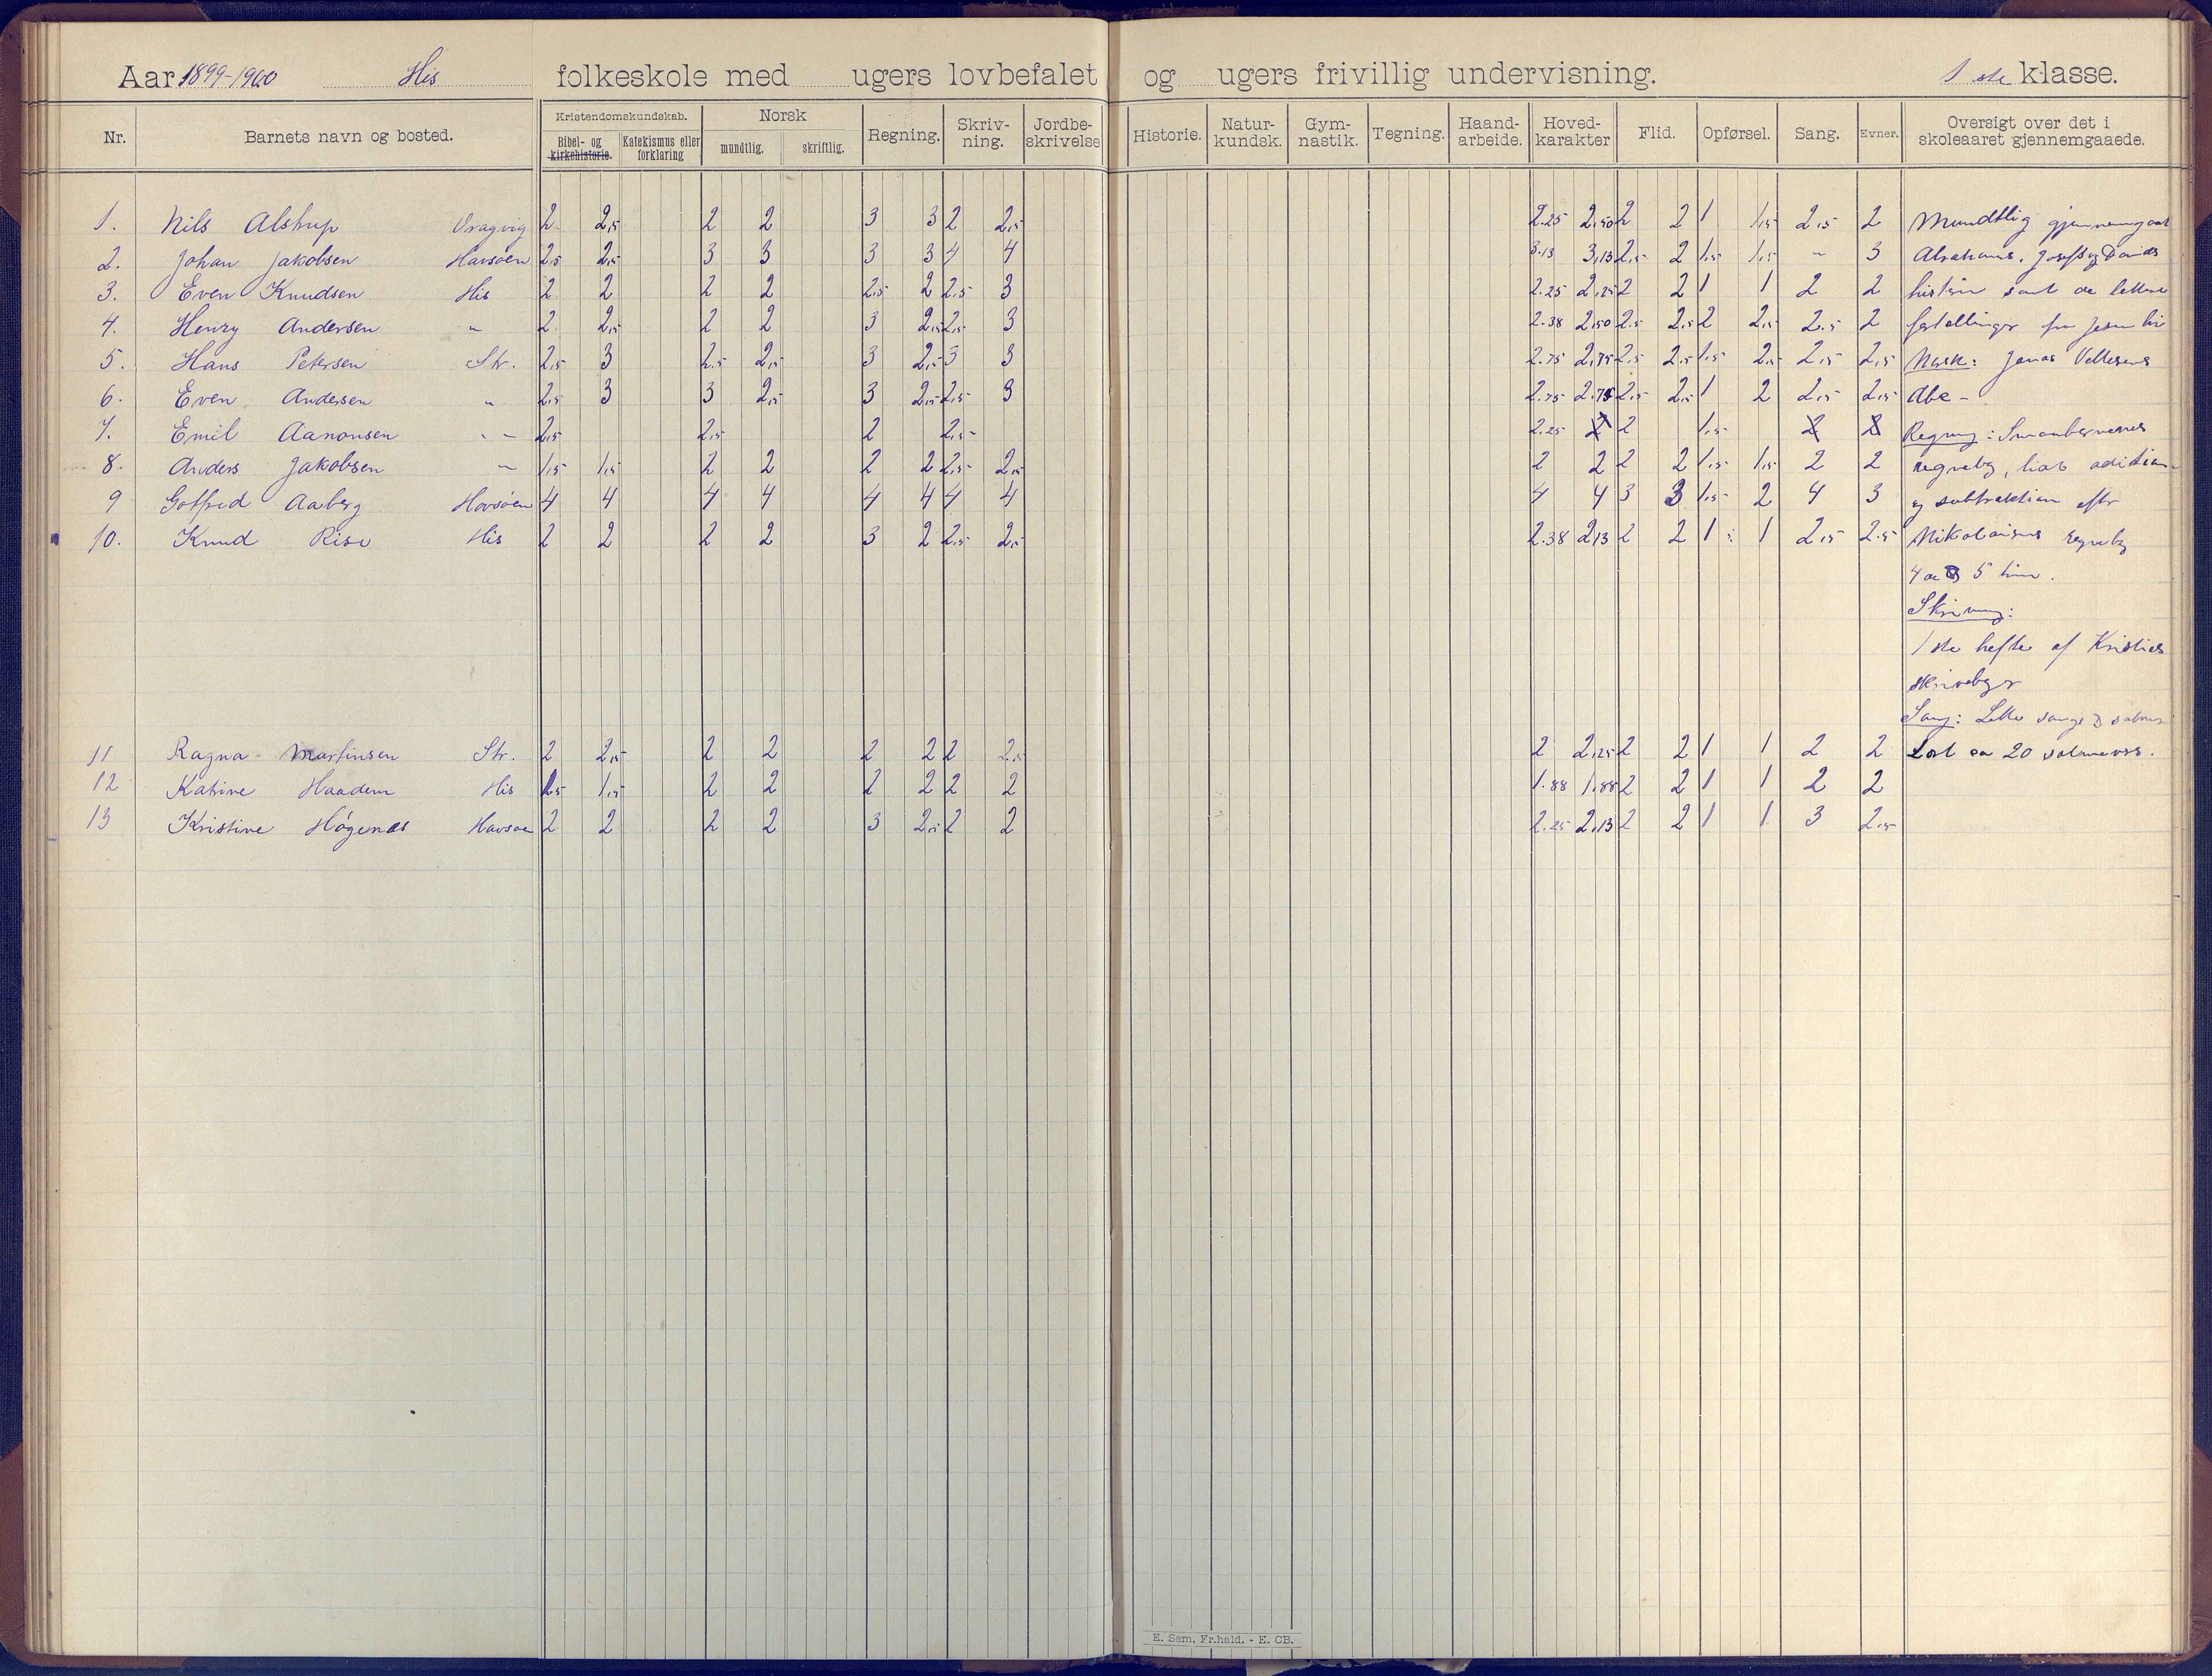 Aar 1899-1900 His folkeskole med ugers lovbefalet og ugers frivillig undervisning. 1 ste klasse.
Nr. Barnets navn og bosted. Kristendomskundskab. Bibel- og kirkehistorie. Katekismus eller forklaring Norsk mundtlig. skriftlig. Regning. Skriv-ning. Jordbe-skrivelse Historie. Natur-kundsk. Gym-nastik. Tegning. Haand-arbeide. Hoved-karakter Flid. Opførsel. Sang. Evner. Oversigt over det i skoleaaret gjennemgaaede.
1. Nils Alstrup Vragvig 2 2,5 2 2 3 3 2 2,5 2.25 2,50 2 2 1 1,5 2,5 2 Mundtlig gjennemgaat
2. Johan Jakobsen Havsøen 2,5 2,5 3 3 3 3 4 4 3.13 3,13 2,5 2 1,5 1,5 - 3 Abrahams, Josefs og Davids
3. Even Knudsen His 2 2 2 2 2,5 2 2,5 3 2.25 2,25 2 2 1 1 2 2 historie samt de lettere
4. Henry Andersen " 2 2,5 2 2 3 2,5 2,5 3 2.38 2,50 2,5 2,5 2 2,5 2,5 2 fortellinger fra Jesu liv
5. Hans Petersen Str. 2,5 3 2,5 2,5 3 2,5 3 3 2.75 2,75 2,5 2,5 1,5 2,5 2,5 2,5 Norsk: Jonas Vellesens
6. Even Andersen " 2,5 3 3 2,5 3 2,5 2,5 3 2.75 2.75 2,5 2,5 1 2 2,5 2,5 Abc -
7. Emil Aanonsen " 2,5 2,5 2 2,5 2.25 2 2 1,5 2 2 Regning: Smaabørnenes
8. Anders Jakobsen " 1,5 1,5 2 2 2 2 2,5 2,5 2 2 2 2 1,5 1,5 2 2 regnebog, liat adition
9 Gotfred Aaberg Havsøen 4 4 4 4 4 4 4 4 4 4 3 3 1,5 2 4 3 og subtraktion efter
10. Knud Rise His 2 2 2 2 3 2 2,5 2,5 2.38 2,13 2 2 1 1 2,5 2.5 Nikolaisens regnebog
4 de og 5 time.
Skrivning:
1 ste hefte af Kristies
skrivebøger
Sang: Lette sange og salmer
11 Ragna Martinsen Str. 2 2,5 2 2 2 2 2 2.5 2 2,25 2 2 1 1 2 2 Lært ca 20 salmevers.
12 Katrine Haadem His 1,5 1,5 2 2 2 2 2 2 1.88 1.88 2 2 1 1 2 2
13 Kristine Høgenes Havsøen 2 2 2 2 3 2,5 2 2 2.25 2,13 2 2 1 1 3 2,5
E. Sem, Fr.hald. - E. CB.